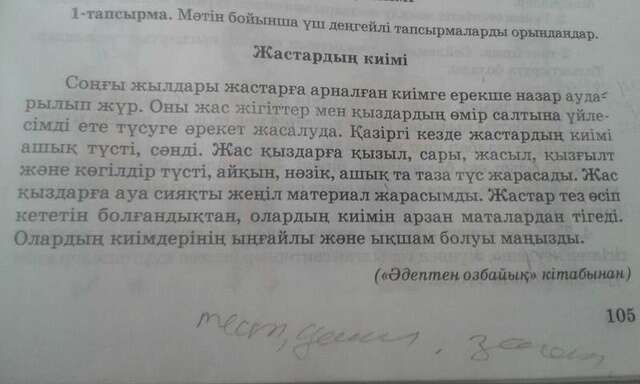 1-тапсырма. Мәтін бойынша үш деңгейлі тапсырмаларды орындандар.
Жастардың киімі
Соңғы жылдары жастарға арналған киімге ерекше назар ауда-
рылып жүр. Оны жас жігіттер мен қыздардың өмір салтына үйле-
сімді ете түсуге әрекет жасалуда. Қазіргі кезде жастардың киімі
ашық түсті, сәнді. Жас қыздарға қызыл, сары, жасыл, қызғылт
және көгілдір түсті, айқын, нәзік, ашық та таза түс жарасады. Жас
қыздарға ауа сияқты жеңіл материал жарасымды. Жастар тез өсіп
кететін болғандықтан, олардың киімін арзан маталардан тігеді.
Олардың киімдерінің ыңғайлы және ықшам болуы маңызды.
(«Әдептен озбайық» кітабынан)
105